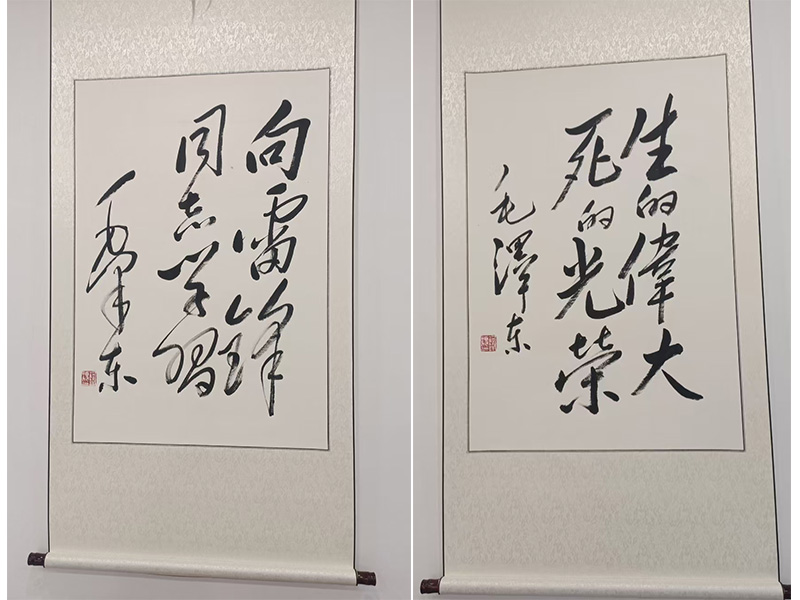 向雷锋
同志学習
毛泽东
生的偉大
死的光榮
毛澤东